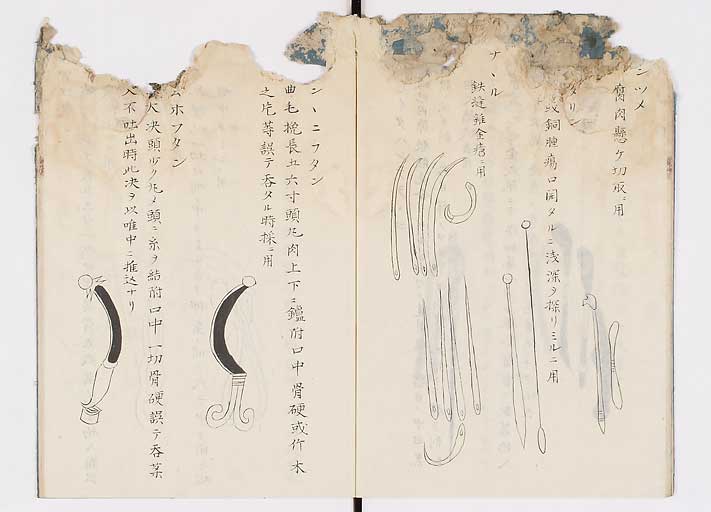 シツメ
腐肉懸ケ切取ニ用
タリン
或銅腫瘍口開タルニ浅深ヲ探リミルニ用
ナヽル
鉄縫雑金瘡ニ用
シヽニフタン
曲毛 長五六寸頭尤肉上下ニ鑪附口中骨硬或竹木
之片等誤テ呑タル時採ニ用
ホフタン
大決頭少ク凡メ頭ニ糸ヲ結附口中一切骨硬誤テ呑業
入不吐出時此決ヲ以唯中ニ推込ナリ